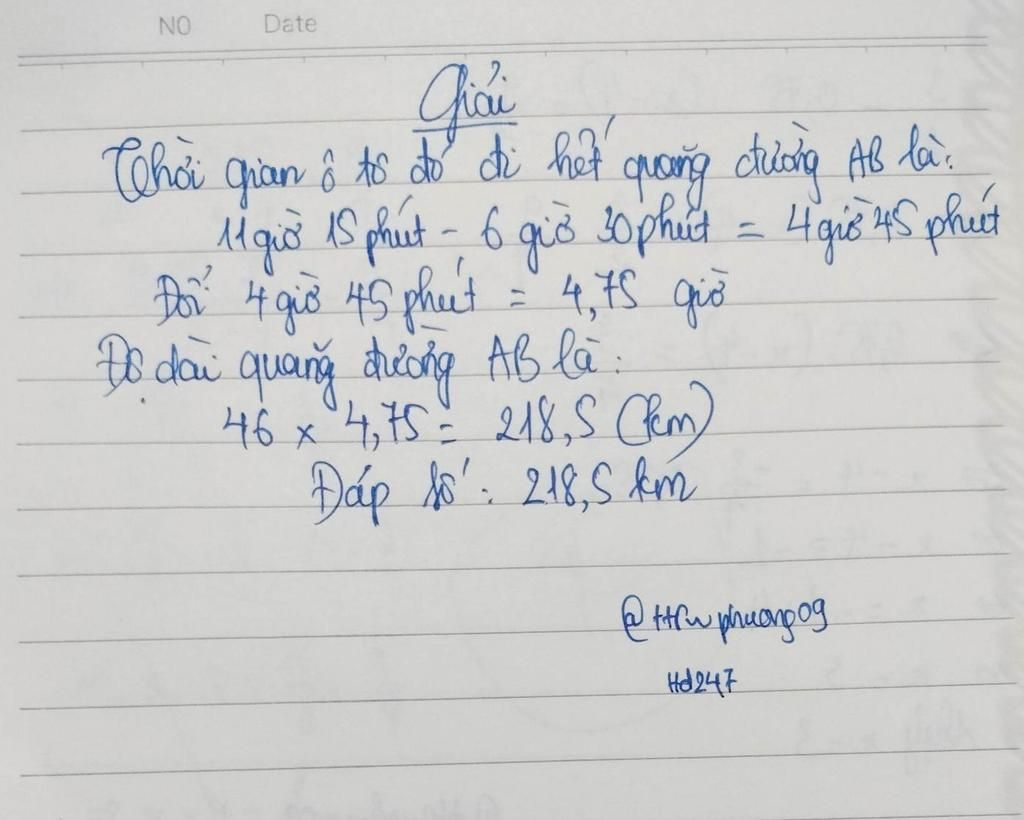 NO Date
Giải
Thời gian ô tô đó đi hết quãng đường AB là:
11 giờ 15 phút - 6 giờ 30 phút = 4 giờ 45 phút
Đổi 4 giờ 45 phút = 4,75 giờ
Độ dài quãng đường AB là:
46 × 4,75 = 218,5 (km)
Đáp số: 218,5 km
Hd247